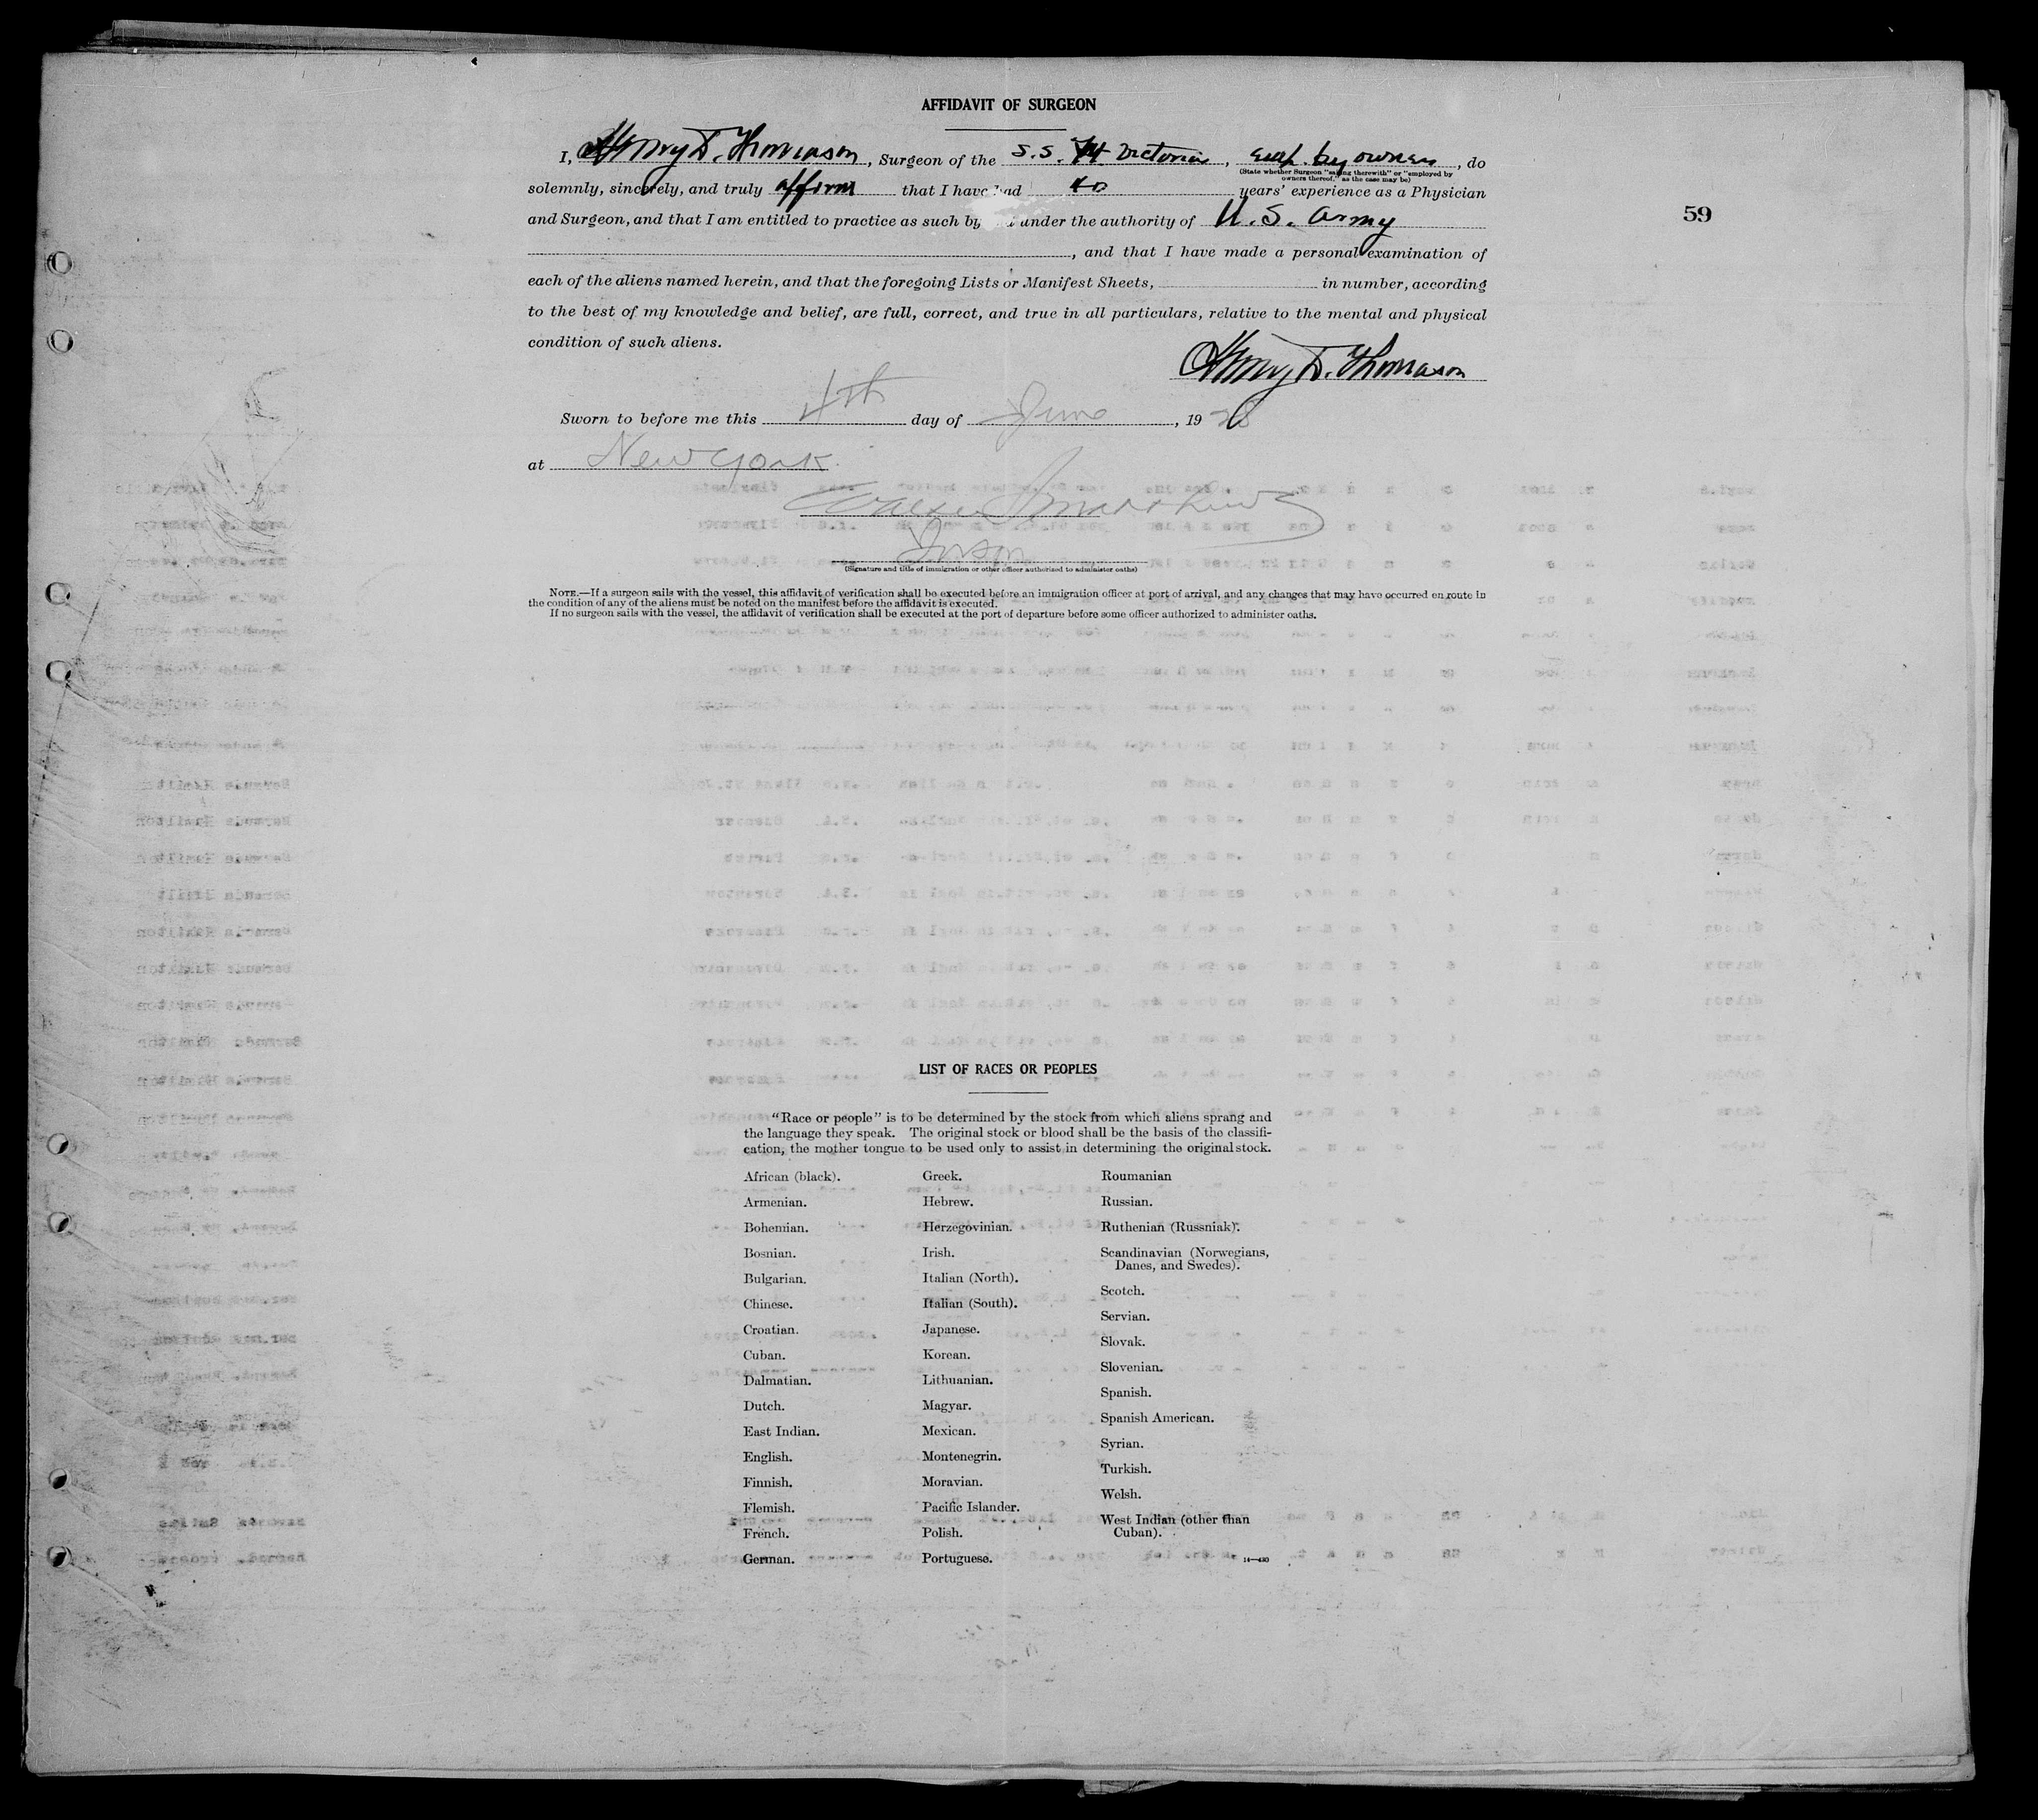 AFFIDAVIT OF SURGEON
I, Henry D. Thomason, Surgeon of the S.S. Ft Victoria, emp. by owners, do
(State whether Surgeon "sailing therewith" or "employed by
owners thereof," as the case may be)
solemnly, sincerely, and truly affirm that I have had 40 years' experience as a Physician
and Surgeon, and that I am entitled to practice as such by under the authority of U.S. Army
59
, and that I have made a personal examination of
each of the aliens named herein, and that the foregoing Lists or Manifest Sheets, in number, according
to the best of my knowledge and belief, are full, correct, and true in all particulars, relative to the mental and physical
condition of such aliens.
Henry D. Thomason
Sworn to before me this 4th day of June, 1928
at New York
(Signature and title of immigration or other officer authorized to administer oaths)
NOTE.—If a surgeon sails with the vessel, this affidavit of verification shall be executed before an immigration officer at port of arrival, and any changes that may have occurred en route in
the condition of any of the aliens must be noted on the manifest before the affidavit is executed.
If no surgeon sails with the vessel, the affidavit of verification shall be executed at the port of departure before some officer authorized to administer oaths.
LIST OF RACES OR PEOPLES
"Race or people" is to be determined by the stock from which aliens sprang and
the language they speak. The original stock or blood shall be the basis of the classifi-
cation, the mother tongue to be used only to assist in determining the original stock.
African (black).
Armenian.
Bohemian.
Bosnian.
Bulgarian.
Chinese.
Croatian.
Cuban.
Dalmatian.
Dutch.
East Indian.
English.
Finnish.
Flemish.
French.
German.
Greek.
Hebrew.
Herzegovinian.
Irish.
Italian (North).
Italian (South).
Japanese.
Korean.
Lithuanian.
Magyar.
Mexican.
Montenegrin.
Moravian.
Pacific Islander.
Polish.
Portuguese.
Roumanian
Russian.
Ruthenian (Russniak).
Scandinavian (Norwegians,
Danes, and Swedes).
Scotch.
Servian.
Slovak.
Slovenian.
Spanish.
Spanish American.
Syrian.
Turkish.
Welsh.
West Indian (other than
Cuban).
14—430